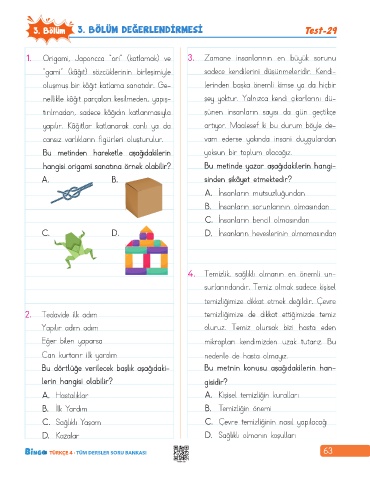 3. Bölüm
3. BÖLÜM DEĞERLENDİRMESİ
Test-29
1. Origami, Japonca "ori" (katlamak) ve
"gami" (kâğıt) sözcüklerinin birleşimiyle
oluşmuş bir kâğıt katlama sanatıdır. Ge-
nellikle kâğıt parçaları kesilmeden, yapış-
tırılmadan, sadece kâğıdın katlanmasıyla
yapılır. Kâğıtlar katlanarak canlı ya da
cansız varlıkların figürleri oluşturulur.
Bu metinden hareketle aşağıdakilerin
hangisi origami sanatına örnek olabilir?
A.
B.
C.
D.
2. Tedavide ilk adım
Yapılır adım adım
Eğer bilen yaparsa
Can kurtarır ilk yardım
Bu dörtlüğe verilecek başlık aşağıdaki-
lerin hangisi olabilir?
A. Hastalıklar
B. İlk Yardım
C. Sağlıklı Yaşam
D. Kazalar
3. Zamane insanlarının en büyük sorunu
sadece kendilerini düşünmeleridir. Kendi-
lerinden başka önemli kimse ya da hiçbir
şey yoktur. Yalnızca kendi çıkarlarını dü-
şünen insanların sayısı da gün geçtikçe
artıyor. Maalesef ki bu durum böyle de-
vam ederse yakında insani duygulardan
yoksun bir toplum olacağız.
Bu metinde yazar aşağıdakilerin hangi-
sinden şikâyet etmektedir?
A. İnsanların mutsuzluğundan
B. İnsanların sorunlarının olmasından
C. İnsanların bencil olmasından
D. İnsanların heveslerinin olmamasından
4. Temizlik, sağlıklı olmanın en önemli un-
surlarındandır. Temiz olmak sadece kişisel
temizliğimize dikkat etmek değildir. Çevre
temizliğimize de dikkat ettiğimizde temiz
oluruz. Temiz olursak bizi hasta eden
mikropları kendimizden uzak tutarız. Bu
nedenle de hasta olmayız.
Bu metnin konusu aşağıdakilerden han-
gisidir?
A. Kişisel temizliğin kuralları
B. Temizliğin önemi
C. Çevre temizliğinin nasıl yapılacağı
D. Sağlıklı olmanın koşulları
BİNGO TÜRKÇE 4 - TÜM DERSLER SORU BANKASI
63